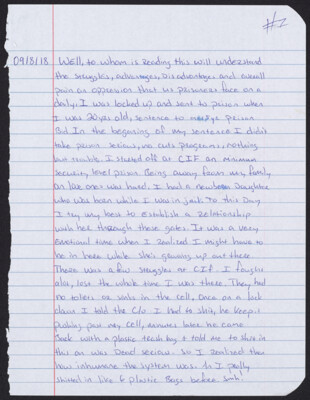 #1
09/8/18 Well, to whom is reading this will understand
the struggles, advanages, Disadvantages and overall
pain an oppression that us prisoners face on a
daily. I was locked up and sent to prison when
I was 20yrs old, sentence to prison
Bid In the beginning of my sentence I didn't
take prison serious, no cuts programs, nothing
but trouble. I started off at CIF an minimum
security level prison. Being away from my family
an love ones was hard. I had a newborn Daughter
who was born while I was in jail. To this Day
I try my best to establish a Relationship
with her through these gates. It was a very
emotional time when I realized I might have to
be in here while she's growing up out there.
There was a few struggles at CIF. I fought
alot, lost the whole time I was there. They had
no toilets or sinks in the cell, once on a lock
down I told the C/O I had to shit, he keept
pushing past my cell, minutes later he came
back with a plastic trash bag & told me to shit in
this an was Dead serious. So I realized then
how inhumane the system was. So I prolly
shitted in like 6 plastic Bags before smh.